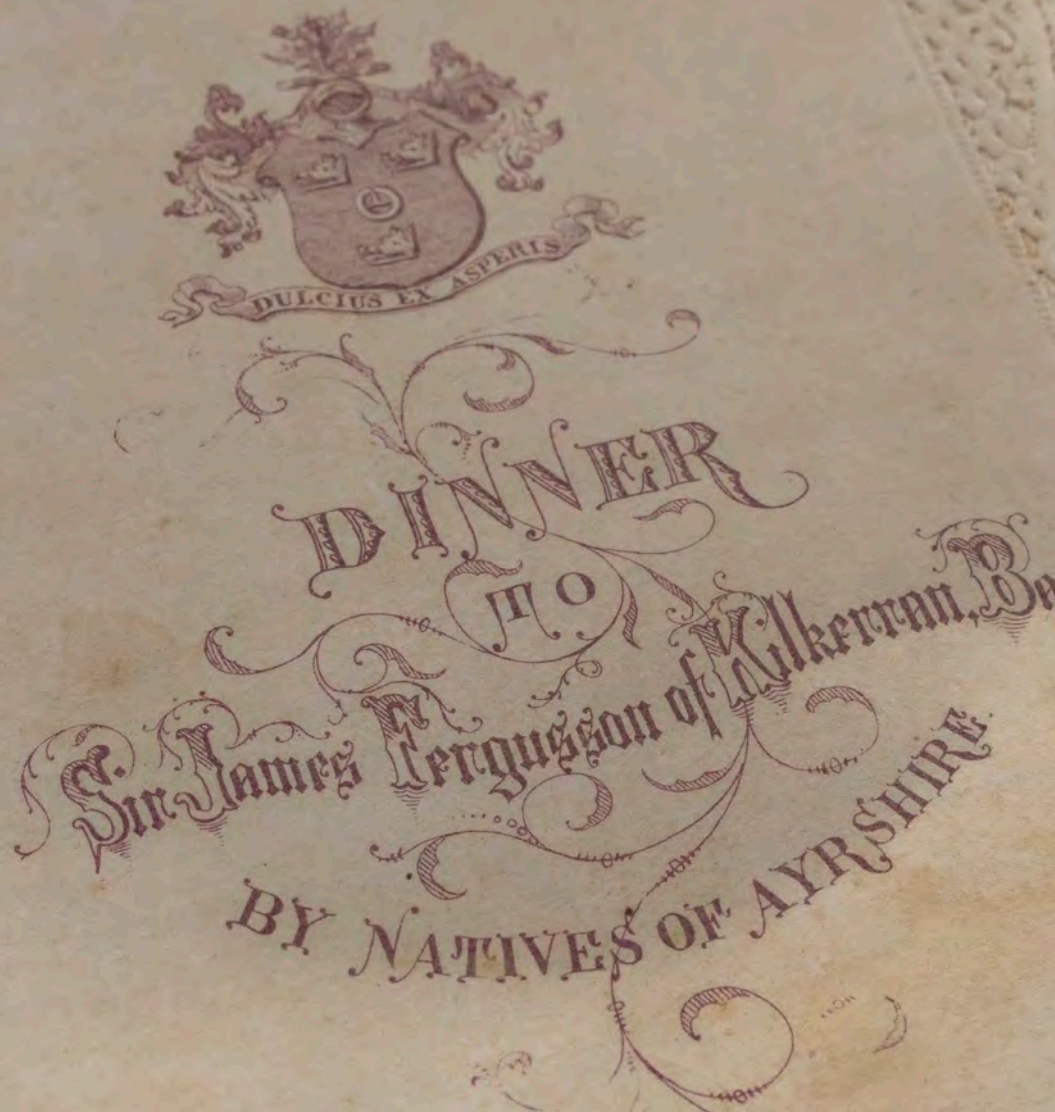 DULCIUS EX ASPERIS
DINNER
TO
Sir James Fergusson of Kilkerran, Ba
BY NATIVES OF AYRSHIRE.